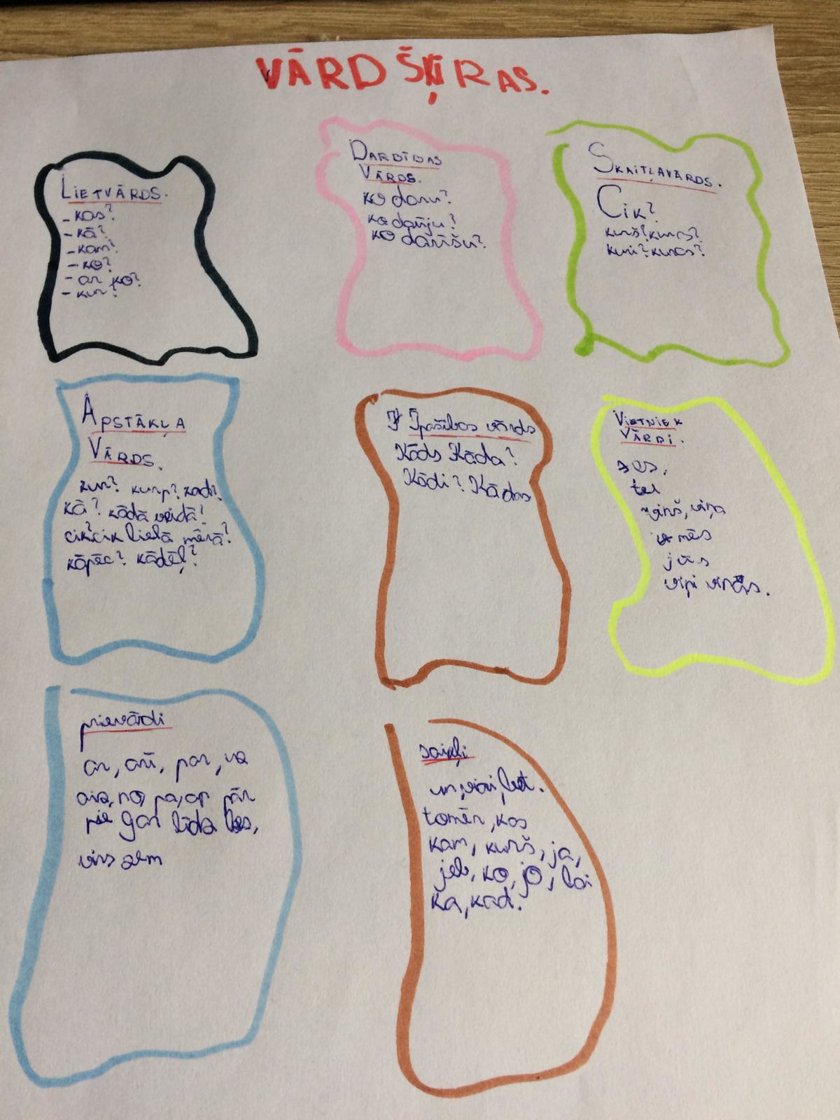 VĀRDŠĶIRAS.
LIETVĀRDS.
- kas?
- kā?
- kam?
- ko?
- ar ko?
- kur?
DARBĪBAS
VĀRDS.
ko daru?
ko darīju?
ko darīšu?
SKAITĻAVĀRDS.
Cik?
kurš? kuras?
kuri? kuras?
APSTĀKĻA
VĀRDS.
kur? kurp? kad?
kā? kādā veidā?
cik? cik lielā mērā?
kāpēc? kādēļ?
Īpašības vārds
Kāds Kāda?
Kādi? Kādas
VIETNIEK
VĀRDI.
es,
tu
viņš, viņa
mēs
jūs
viņi viņas.
prievārdi
ar, arī, par, uz
aiz, no, pa, ap pār
pie gar līdz bez,
virs zem
saikļi
un, vai, bet.
tomēr, kas
kam, kurš, ja,
jeb, ko, jo, lai
ka, kad.